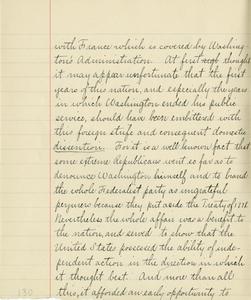 with France which is covered by Washing-
ton's Administration. At first thought
it may appear unfortunate that the first
years of this nation, and especially the years
in which Washington ended his public
service, should have been embittered with
this foreign strife and consequent domestic
discention. For it is a well known fact that
some extreme Republicans went so far as to
denounce Washington himself and to brand
the whole Federalist party as ungrateful
perjurers because they put aside the Treaty of 1778.
Nevertheless the whole affair was a benefit to
the nation, and served to show that the
United States possessed the ability of inde-
pendent action in the direction in which
it thought best. And more than all
this, it afforded an early opportunity to
130